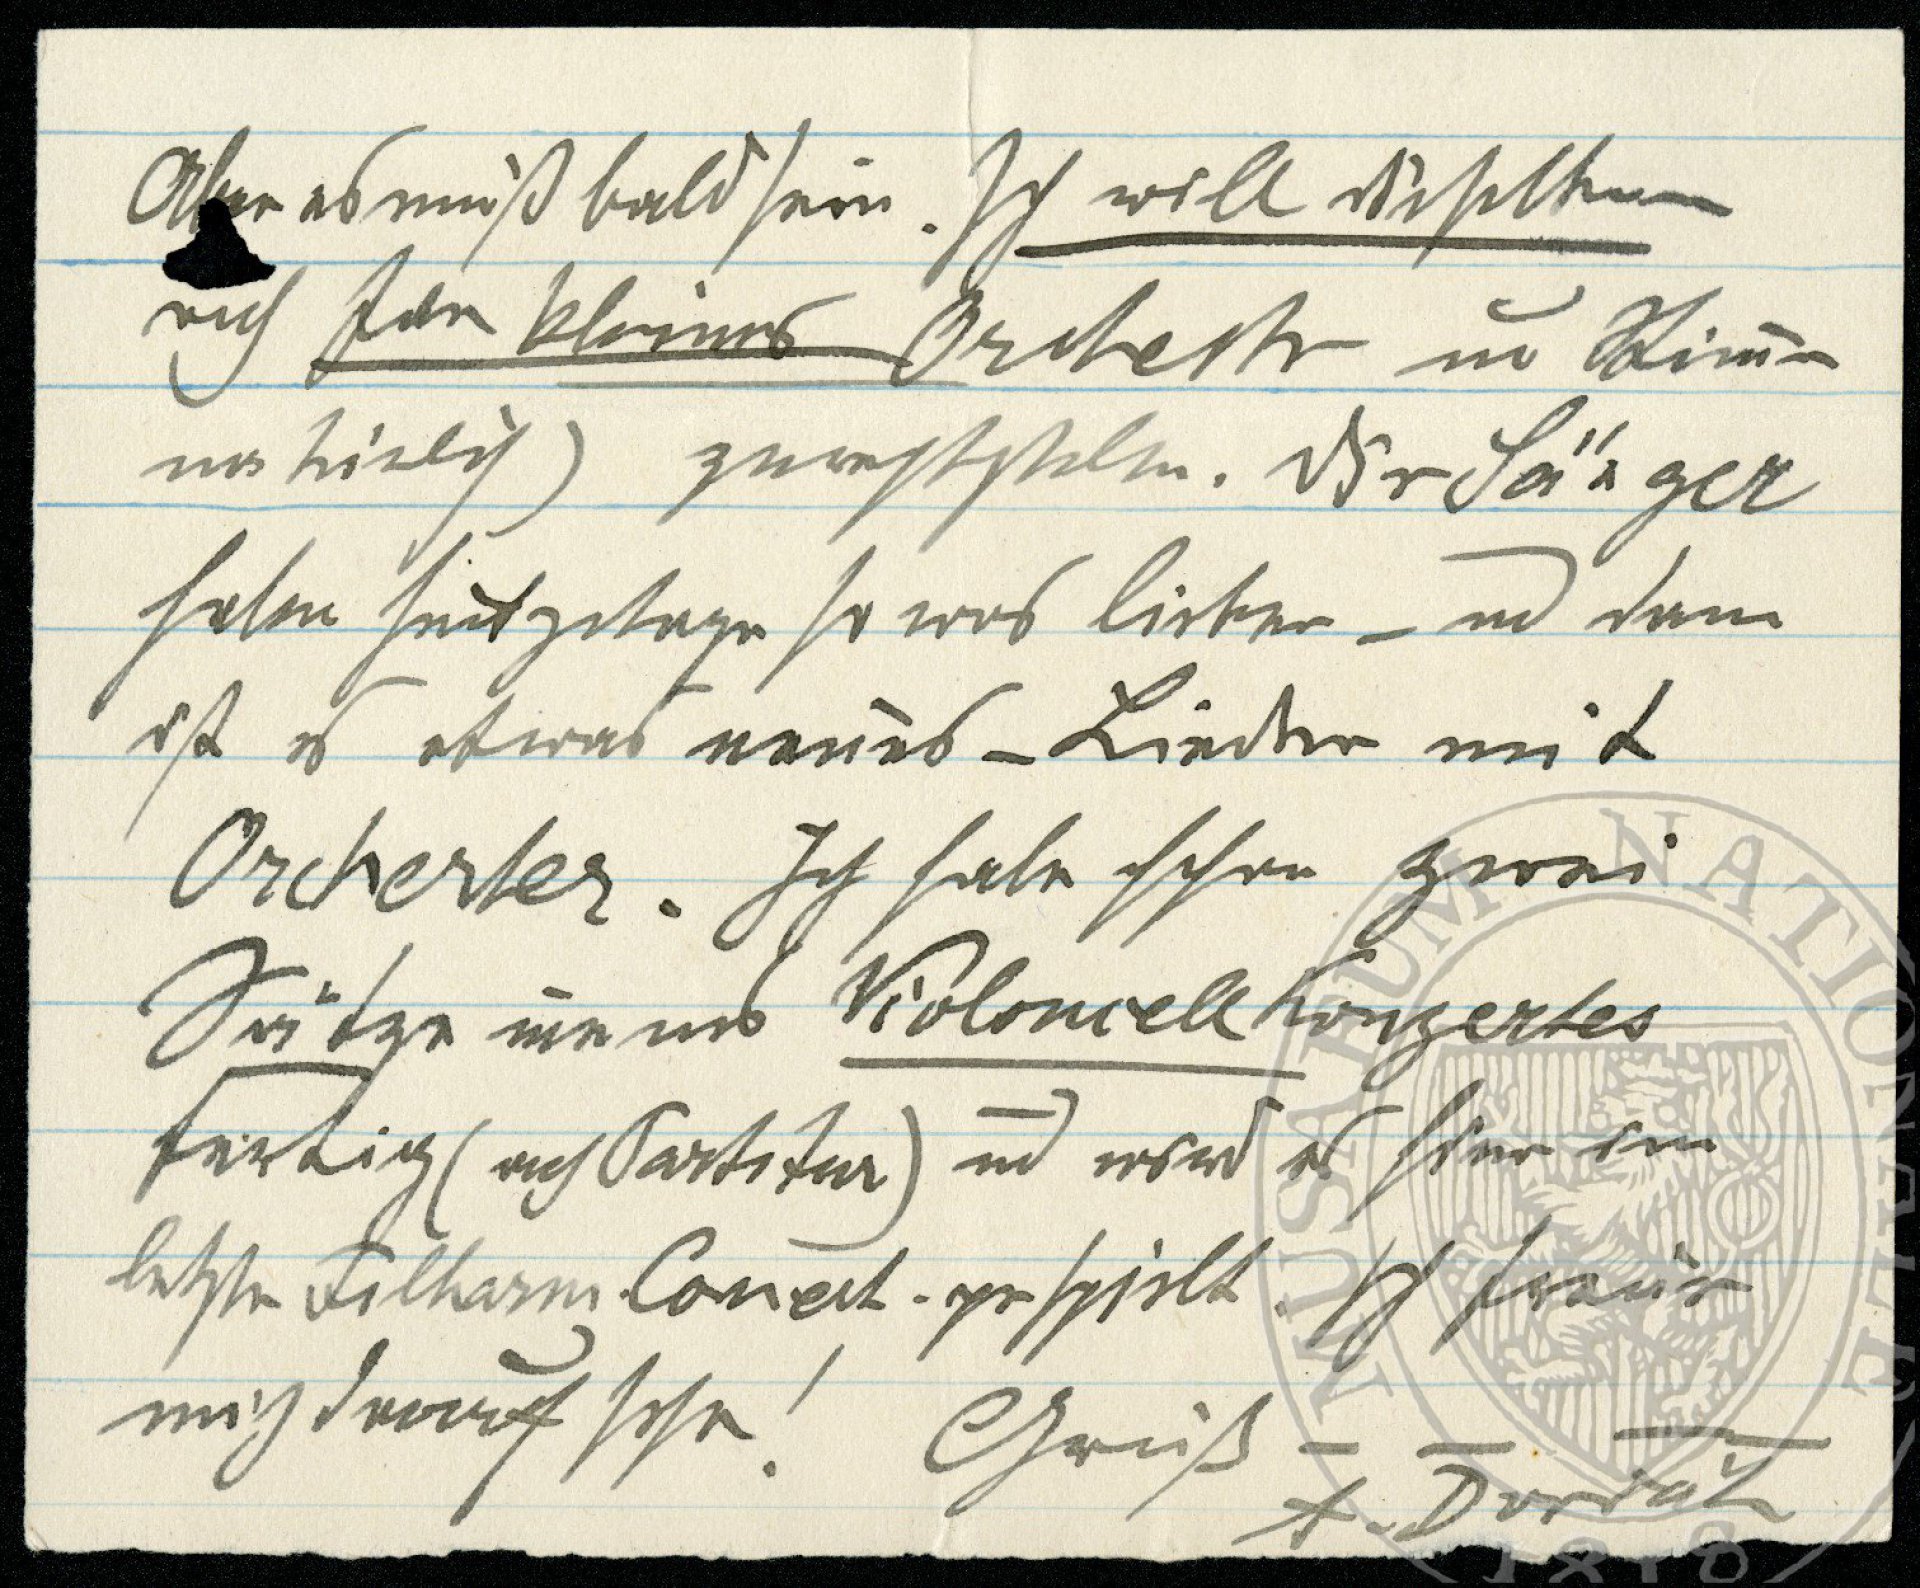 Aber es muß bald sein. Ich will dieselben
auch für kleines Orchestr u Stimme
natürlich) zurechtstellen. Die Sänger
haben heutzutage so was lieber – und dann
ist es etwas neues – Lieder mit
Orchester. Ich habe schon zwei
Sätze meines Violoncellkonzertes
fertig (auch Partitur) und wird es hier im
letzten Filharm. Concert. gespielt. Ich freue
mich drauf sehr! Gruß –
MUSAEUM NATIONALE
1818